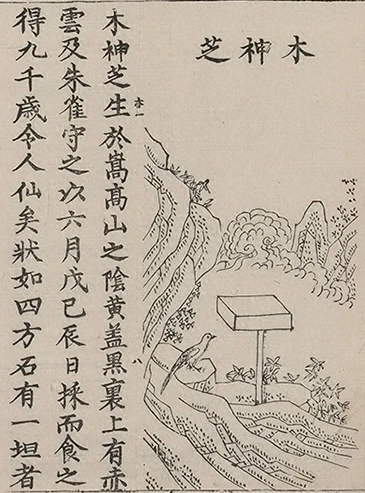 木神芝
木神芝生於嵩髙山之陰黄盖黒裏上有赤
亦一
雲及朱雀守之以六月戊己辰日採而食之
得九千歳令人仙矣狀如四方石有一坦者